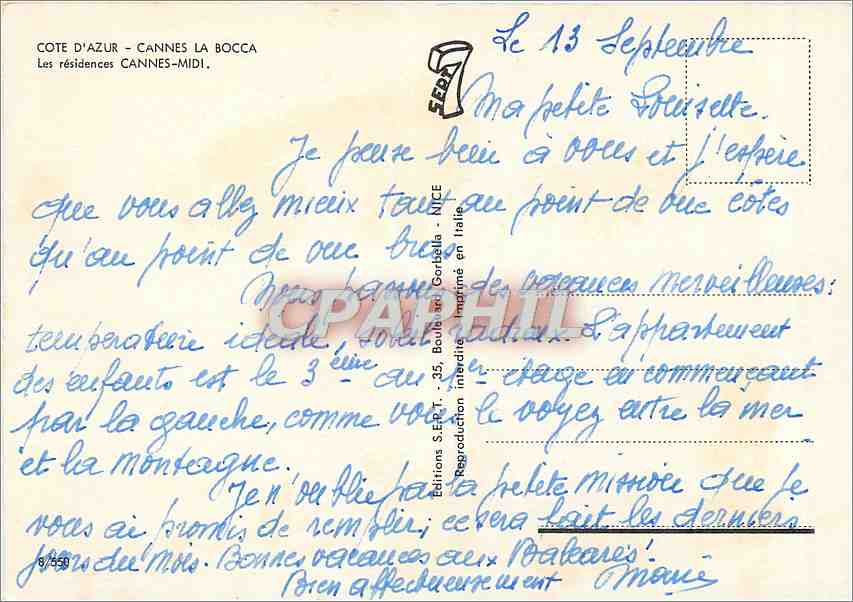 COTE D'AZUR - CANNES LA BOCCA
Les résidences CANNES-MIDI.
SEPT
Le 13 Septembre
Ma petite Louisette.
Je pense bien à vous et j'espère
que vous allez mieux tant au point de vue côtes
qu'au point de vue bras.
Nous passons des vacances merveilleuses:
température idéale, soleil radieux. L'appartement
des enfants est le 3ème au 1er étage en commençant
par la gauche, comme vous le voyez entre la mer
et la montagne.
Je n'oublie pas la petite mission que je
vous ai promis de remplir, ce sera fait les derniers
jours du mois. Bonnes vacances aux Baléares!
Bien affectueusement Marie
8/550
Editions S.E.P.T. - 35, Boulevard Gorbella - NICE
Reproduction interdite - Imprimé en Italie
CPAPHIL